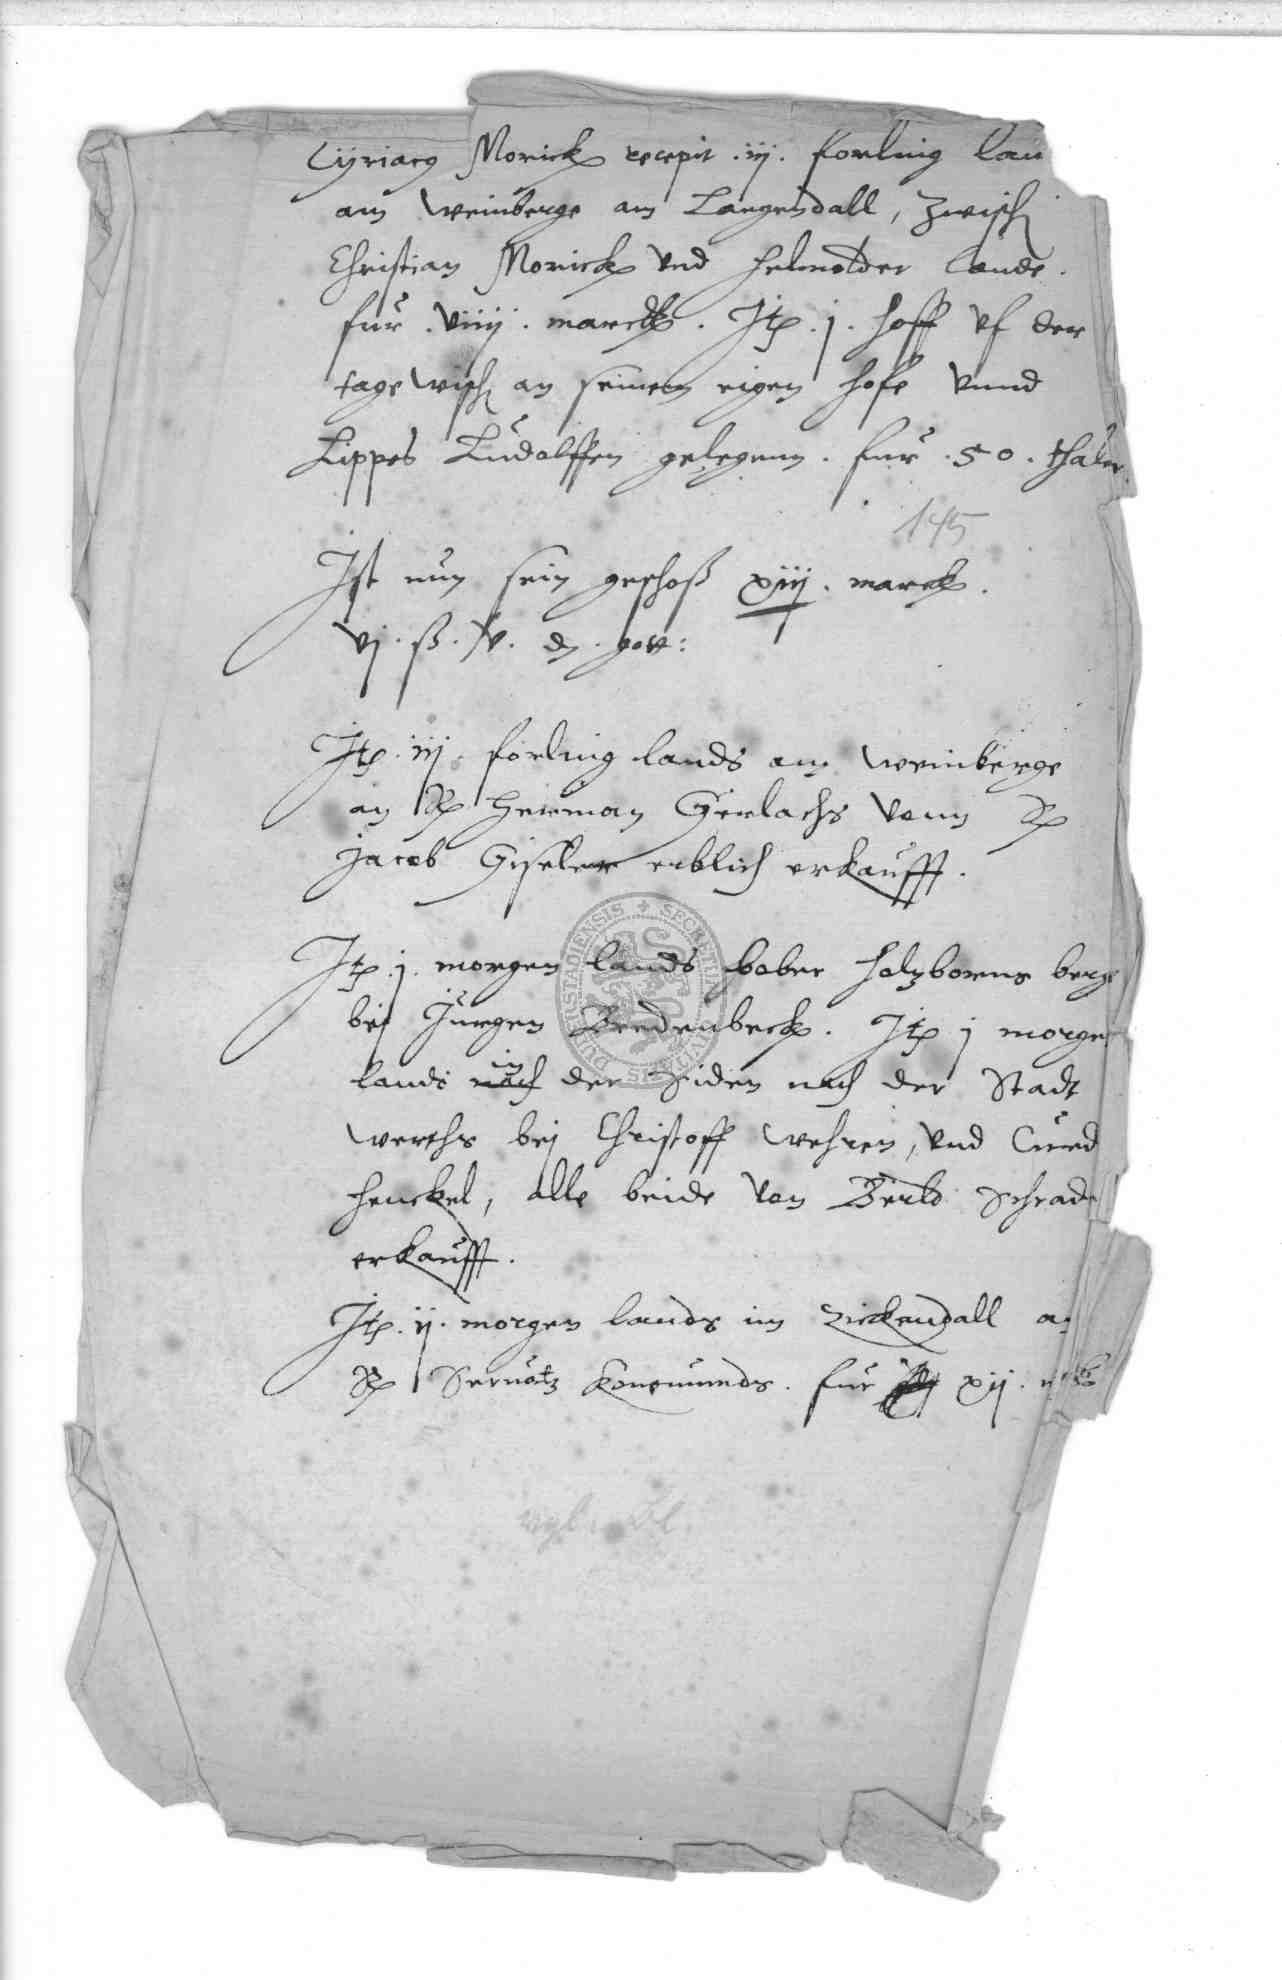 Cyriacg Morick recepit .iij. forling lan
am weinberge am Langendall, zwisch
Christian Morick vnd Helmolder lande.
fur .viiij. marck. Itp .j. hoff vf der
tage wisch an seinem eigen hofe vnnd
Lippes Ludolffen gelegenn. fur .50. thaler
145
Ist nun sein geschoß xiij. marck.
vj. ß. d. gott:
Itp .iij. forling lands am weinberge
an Herman Gerlachs vonn
Jacob Giseler erblich erkaufft.
Itp .j. morgen lands bober holtzborns berge
bej Jurgen Bredenbeck. Itp j morge
lands in der Siden nach der Stadt
werths bej Christoff wehren, vnd Curd
Henckel, alle beide von Berld Schrade
erkaufft.
Itp .ij. morgen lands im Zickendall a
Seruatz Konemunds. fur xij.
DUDERSTADIENSIS + SECRETUM CIVITATIS